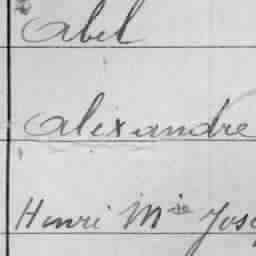 Abel
Alexandre
Henri Mie Jos